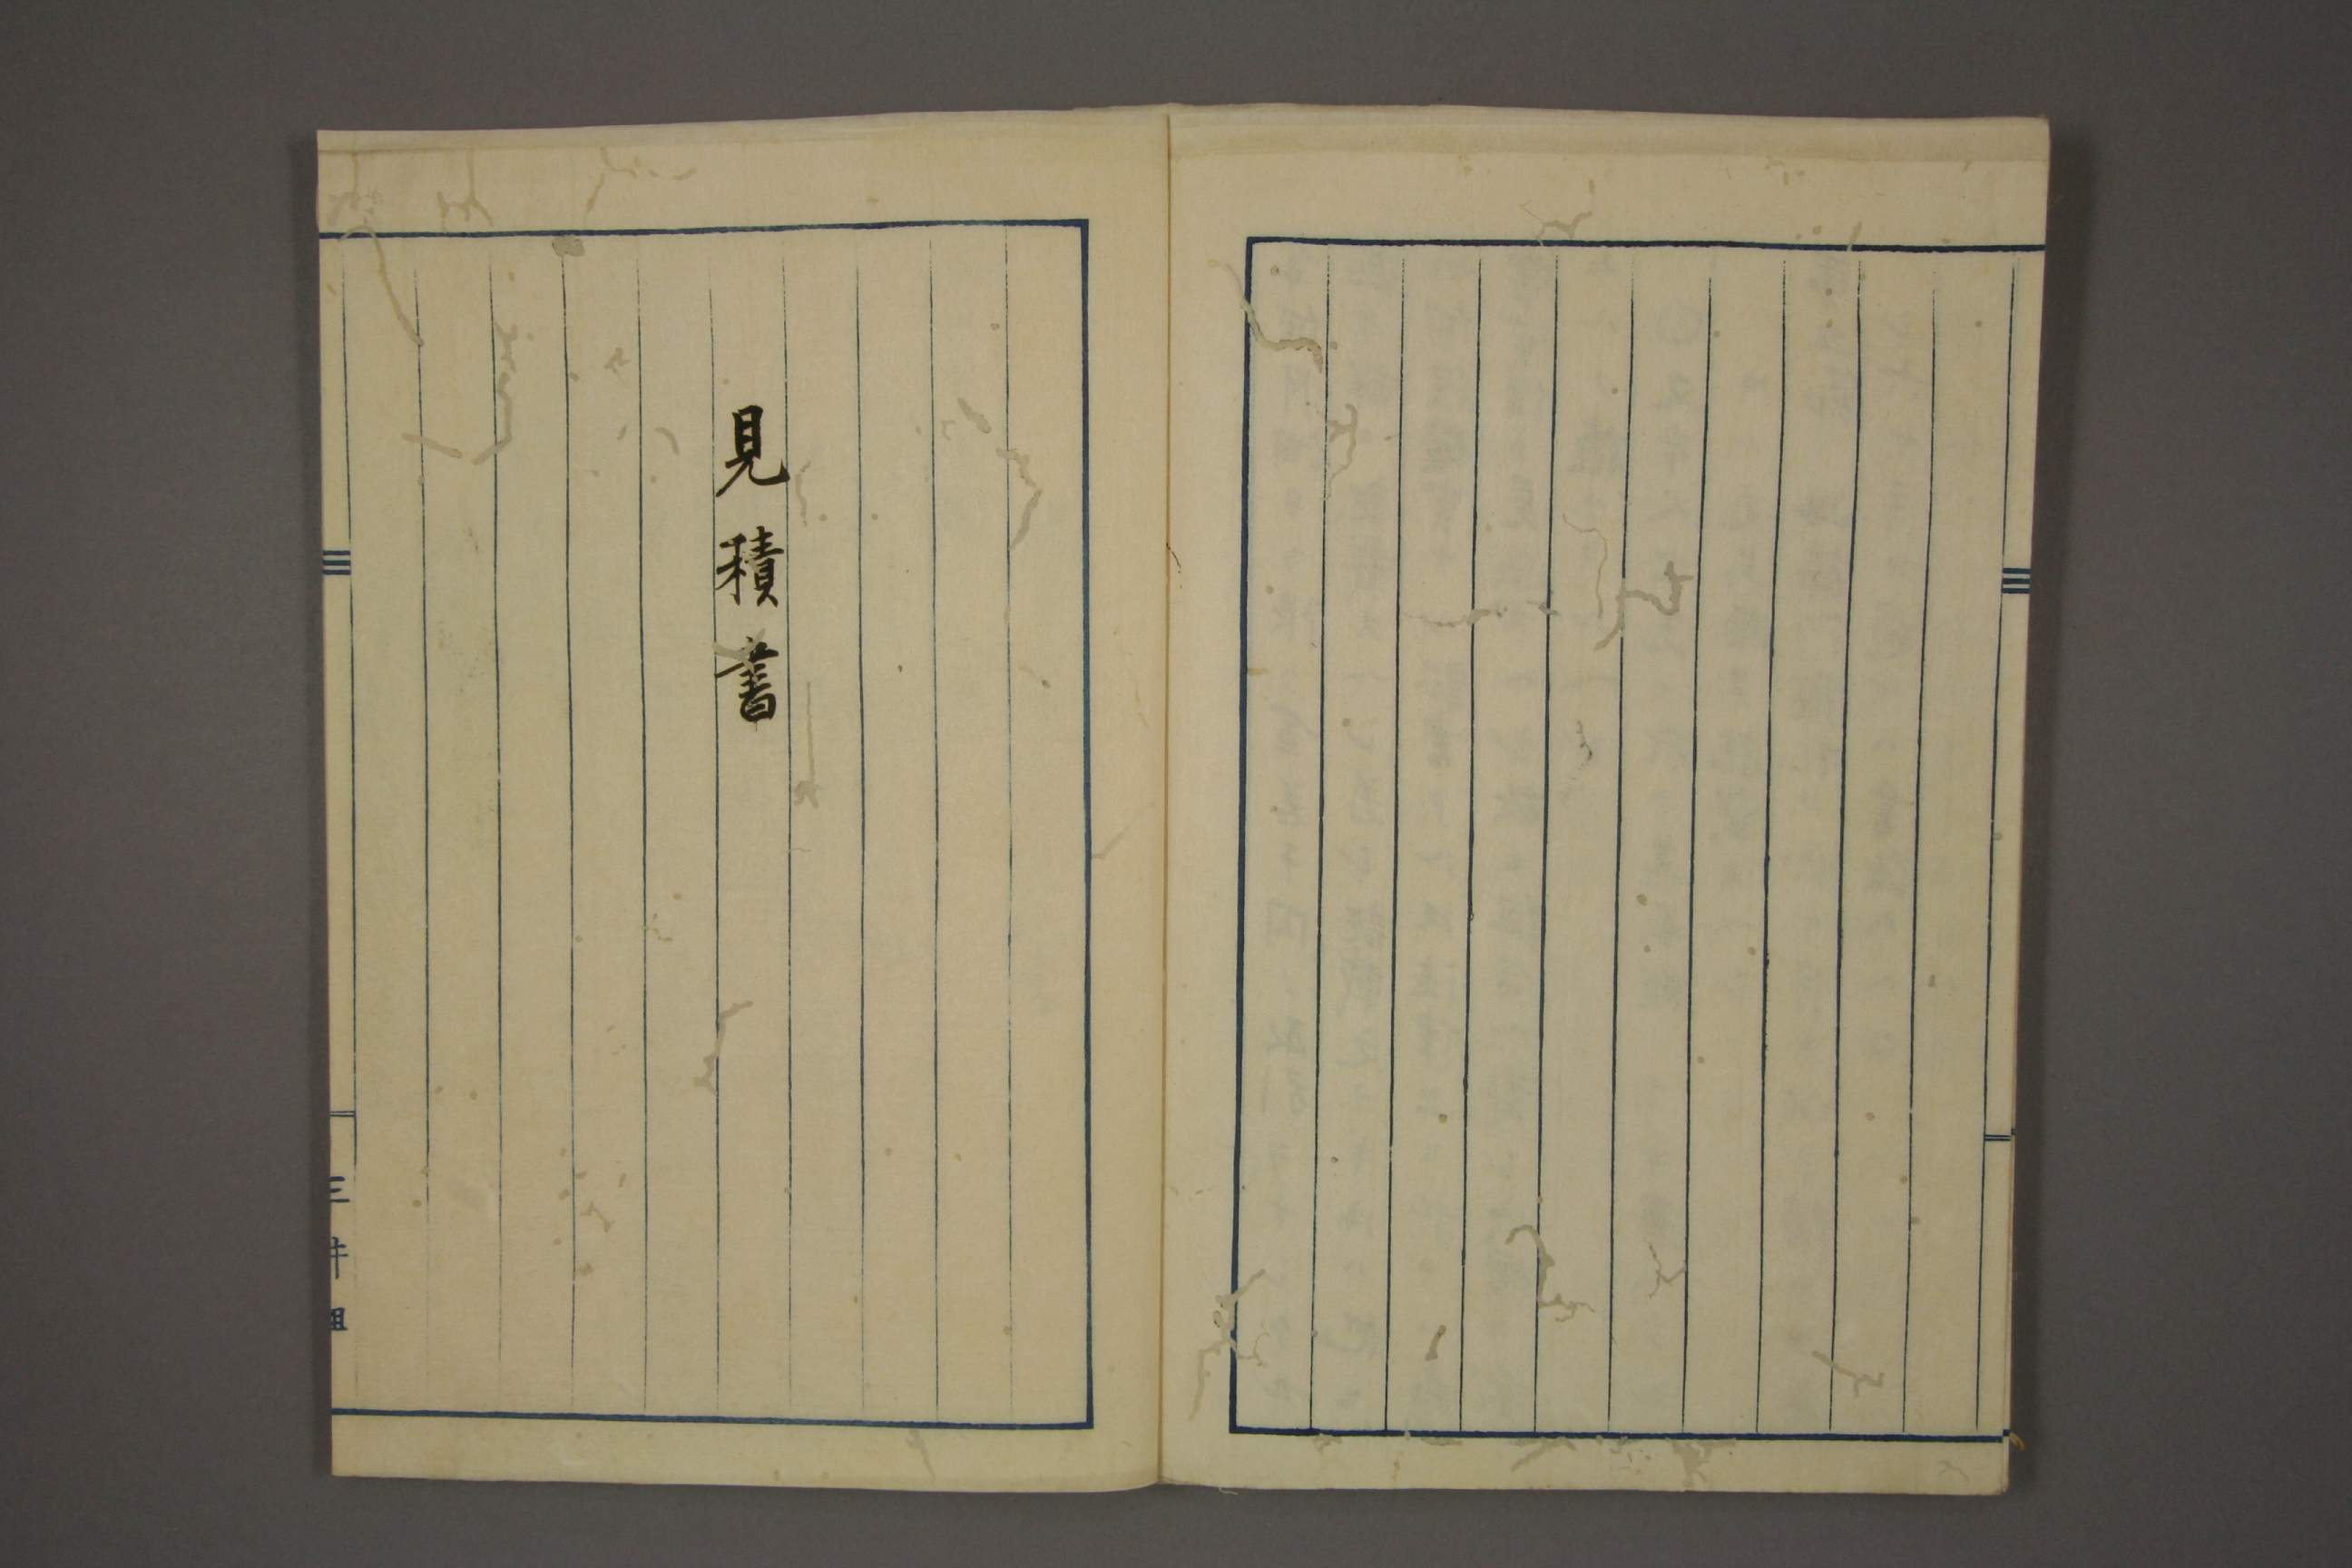 見積書
三井組